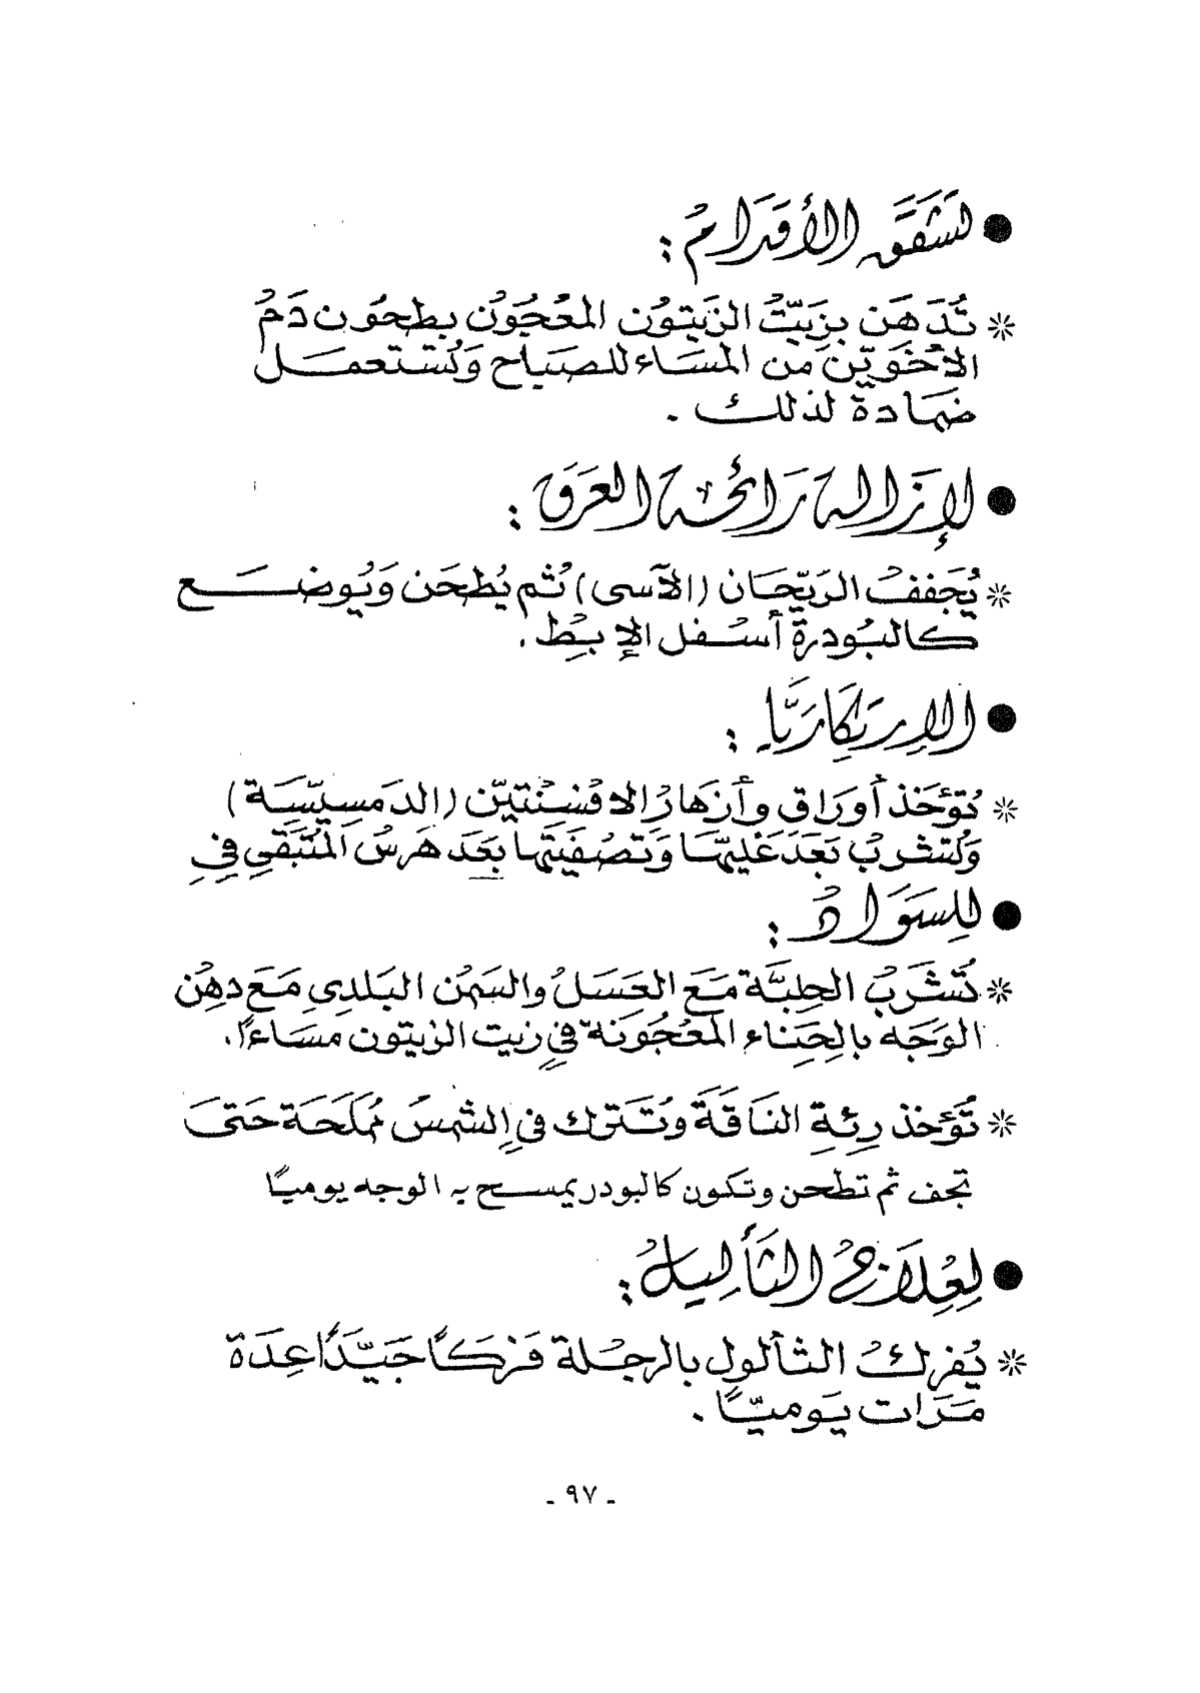 ● لتشقق الأقدام :
* تُدَهَن بزيت الزيتون المعجون بطحون دم
الأخوين من المساء للصباح وتستعمل
ضمادة لذلك .
● لإزالة رائحة العرق :
* يُجففُ الريحان (الآسى) ثم يُطحَن وَيُوضع
كالبودرة أسفل الإبط .
● الارتكاريا :
* تؤخذ أوراق وأزهار الافسنتين (الدمسيسة)
وتشرب بعد غليها وتصفيتها بعد هرس المتبقي في
● للسواد :
* تُشرَبُ الحلبة مَعَ العَسَل والسمن البلدي مَعَ دهن
الوَجَه بالحناء المعجونة في زيت الزيتون مساءًا .
* تُؤخذ رئة الناقة وتترك في الشمس مملحة حتى
تجف ثم تطحن وتكون كالبودر يمسح به الوجه يوميًا
● لعلاج الثآليل :
* يُفرك الثألول بالرجلة فركًا جيدًا عدة
مرات يوميًا .
ـ ٩٧ ـ